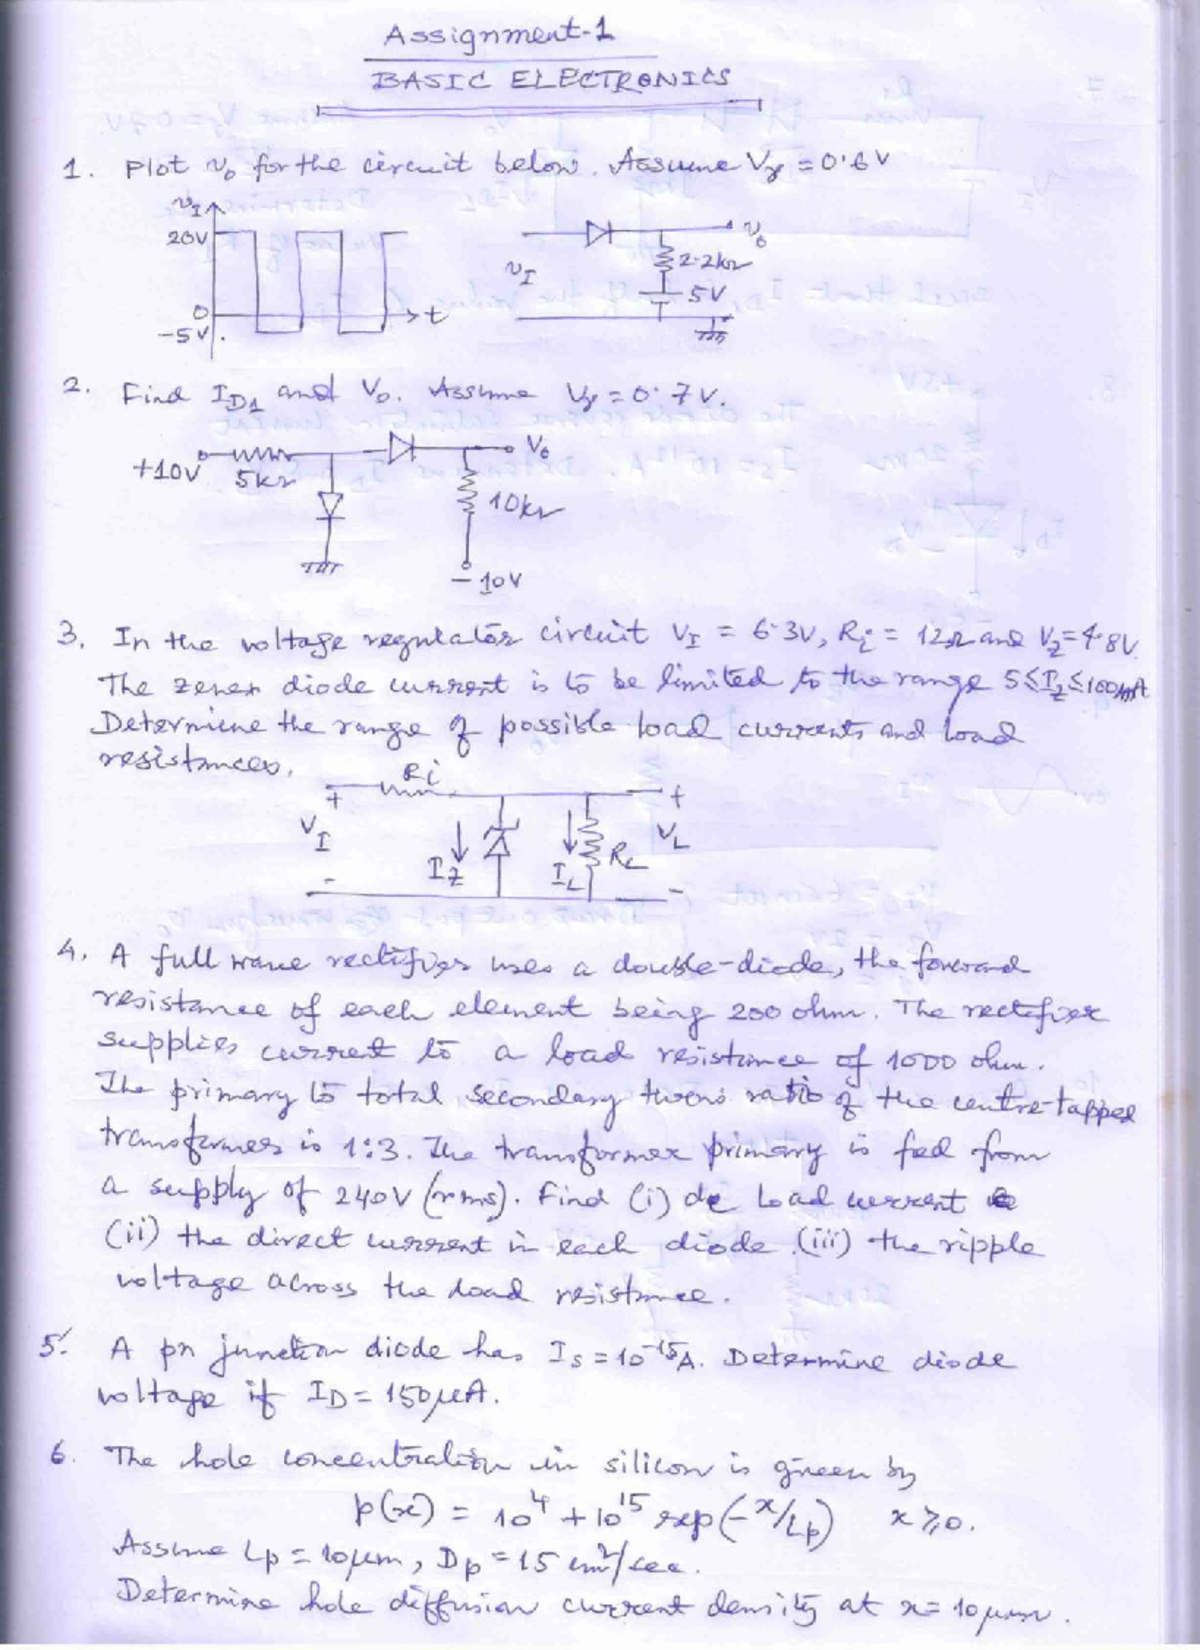 Assignment-1
BASIC ELECTRONICS
1. Plot v₀ for the circuit below. Assume Vγ = 0.6V
v_I
20V
0
-5V
t
v_I
v₀
2.2kΩ
5V
2. Find I_D1 and V₀. Assume Vγ = 0.7V.
+10V
5kΩ
V₀
10kΩ
-10V
3. In the voltage regulator circuit V_I = 6.3V, R_i = 12Ω and V_Z = 4.8V.
The zener diode current is to be limited to the range 5 ≤ I_Z ≤ 100mA
Determine the range of possible load currents and load
resistances.
R_i
+
V_I
-
I_Z
I_L
R_L
+
V_L
-
4. A full wave rectifier uses a double-diode, the forward
resistance of each element being 200 ohm. The rectifier
supplies current to a load resistance of 1000 ohm.
The primary to total secondary turns ratio of the centre-tapped
transformer is 1:3. The transformer primary is fed from
a supply of 240V (rms). Find (i) dc load current
(ii) the direct current in each diode (iii) the ripple
voltage across the load resistance.
5. A pn junction diode has I_S = 10⁻¹⁵A. Determine diode
voltage if I_D = 150μA.
6. The hole concentration in silicon is given by
p(x) = 10⁴ + 10¹⁵ exp(-x/L_p) x ≥ 0.
Assume L_p = 10μm, D_p = 15 cm²/sec.
Determine hole diffusion current density at x = 10μm.